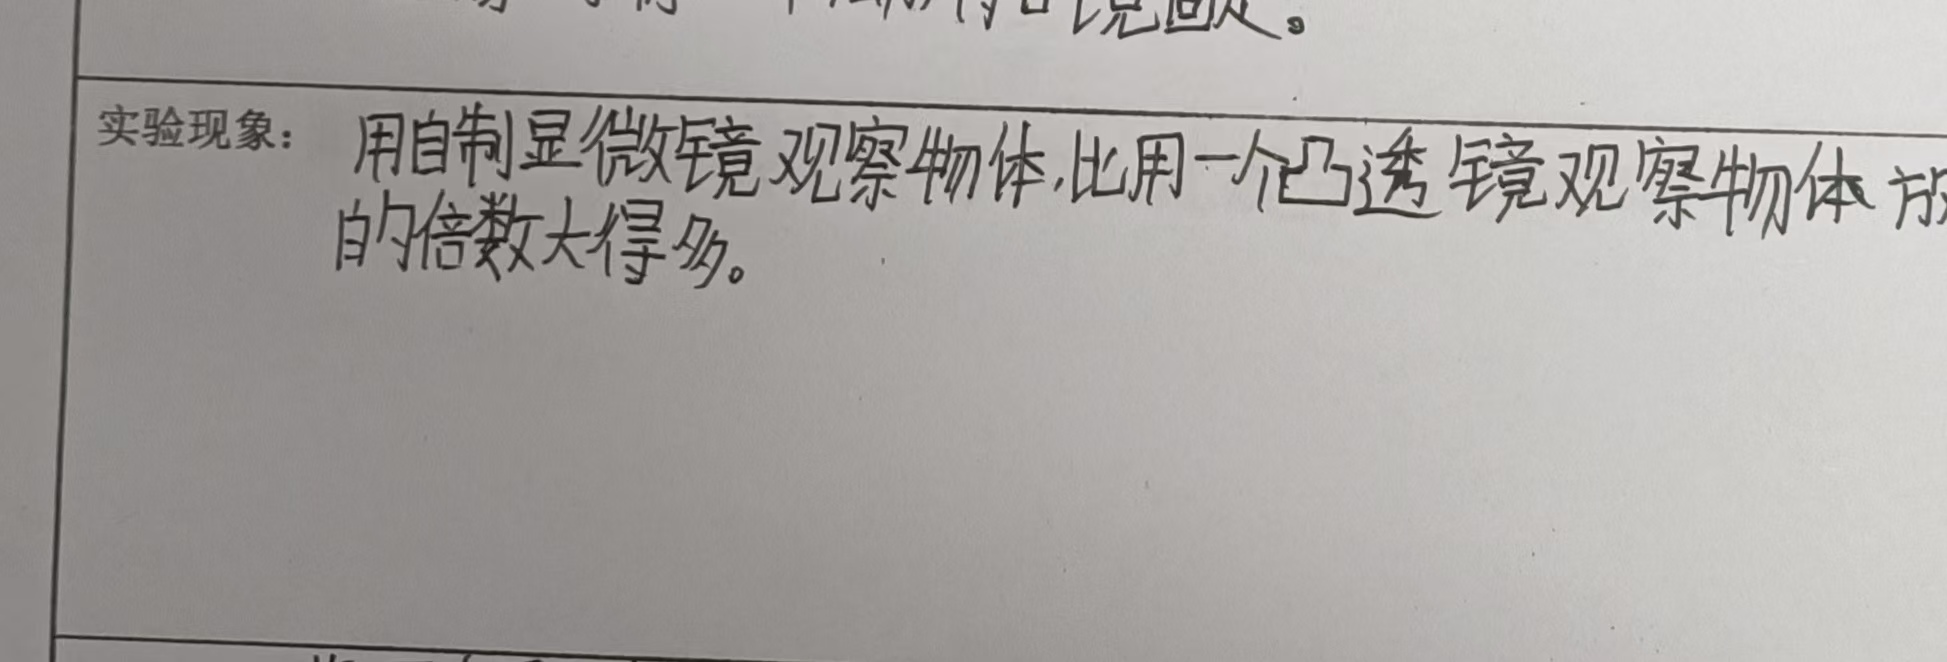 镜固定。
实验现象： 用自制显微镜观察物体，比用一个凸透镜观察物体放
的倍数大得多。